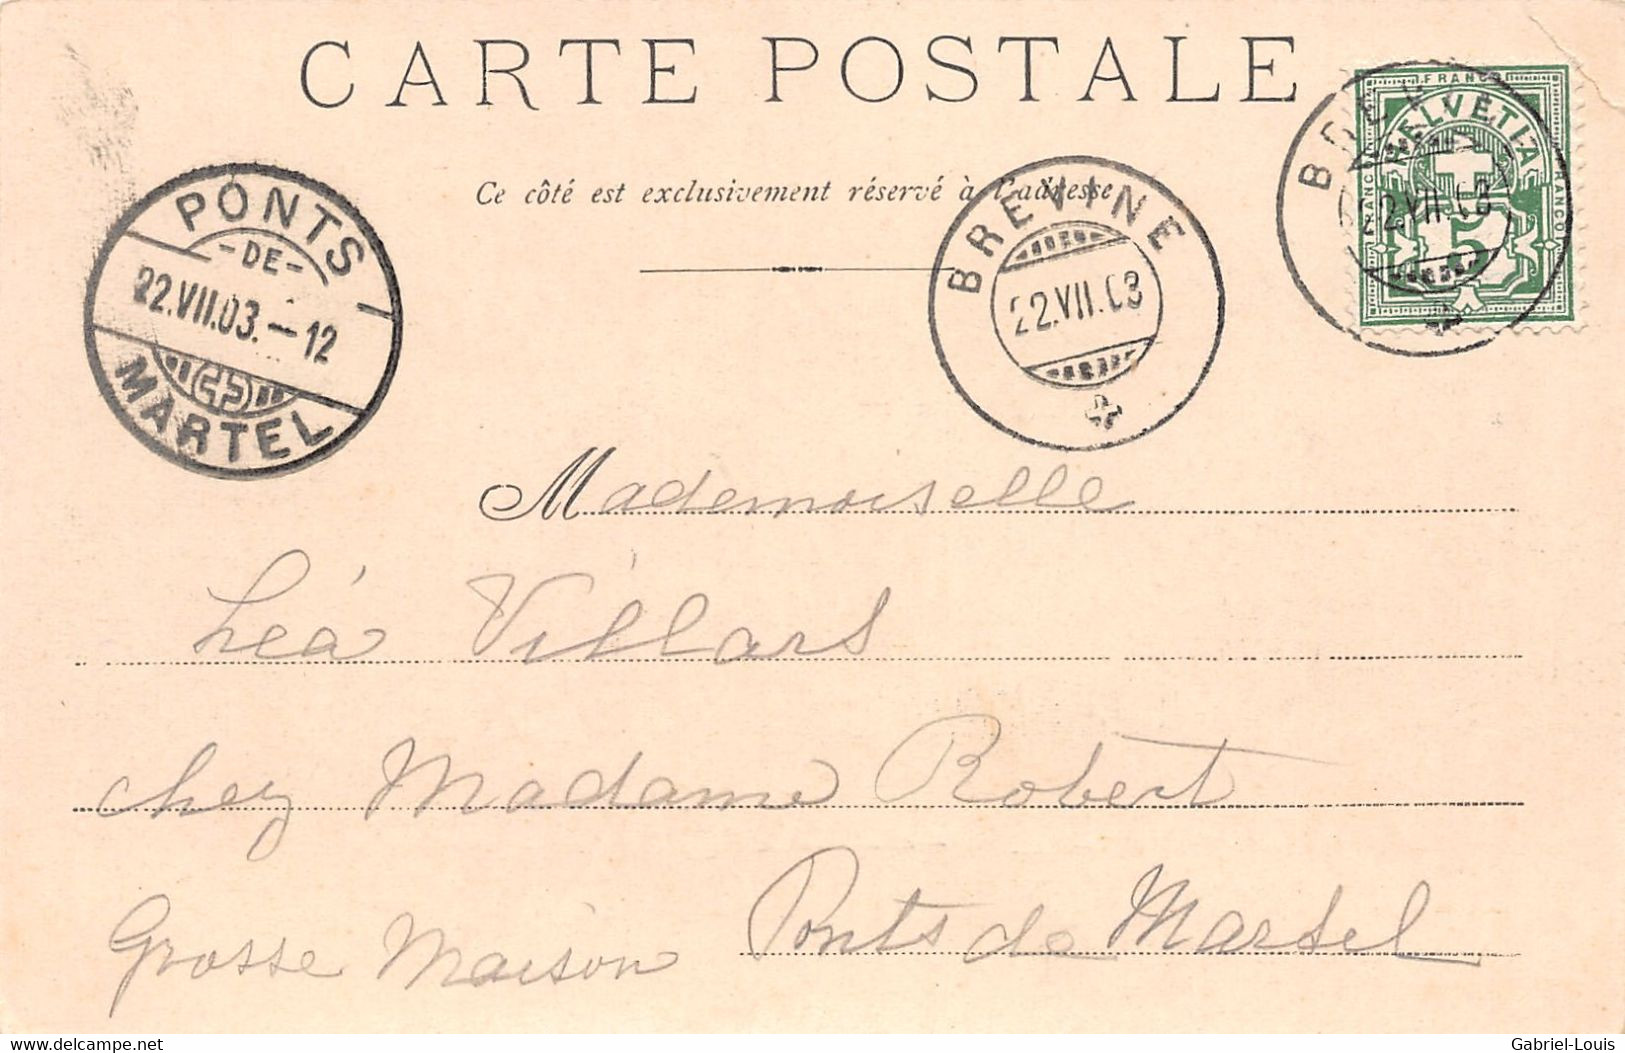 CARTE POSTALE
Ce côté est exclusivement réservé à l'adresse
PONTS
-DE-
22.VII.03.-12
MARTEL
BREVINE
22.VII.03
BREVI
22.VII.03
FRANCO
FRANCO
FRANCO
HELVETIA
5
Mademoiselle
Léa Villars
chez Madame Robert
Grosse Maison Ponts de Martel
www.delcampe.net
Gabriel-Louis